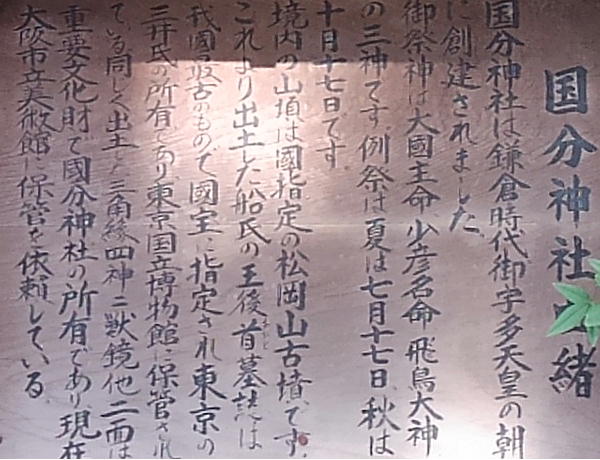 国分神社由緒
国分神社は鎌倉時代御宇多天皇の朝
に創建されました。
御祭神は大國主命、少彦名命、飛鳥大神
の三神です例祭は夏は七月十七日、秋は
十日十七日です。
境内の山頂は國指定の松岡山古墳です。
これより出土した船氏の王後首墓誌は
我國最古のもので國宝に指定され東京の
三井氏の所有であり東京国立博物館に保管され
ている同じく出土した三角縁四神二獣鏡他二面は
重要文化財で國分神社の所有であり現在
大阪市立美術館に保管を依頼している。